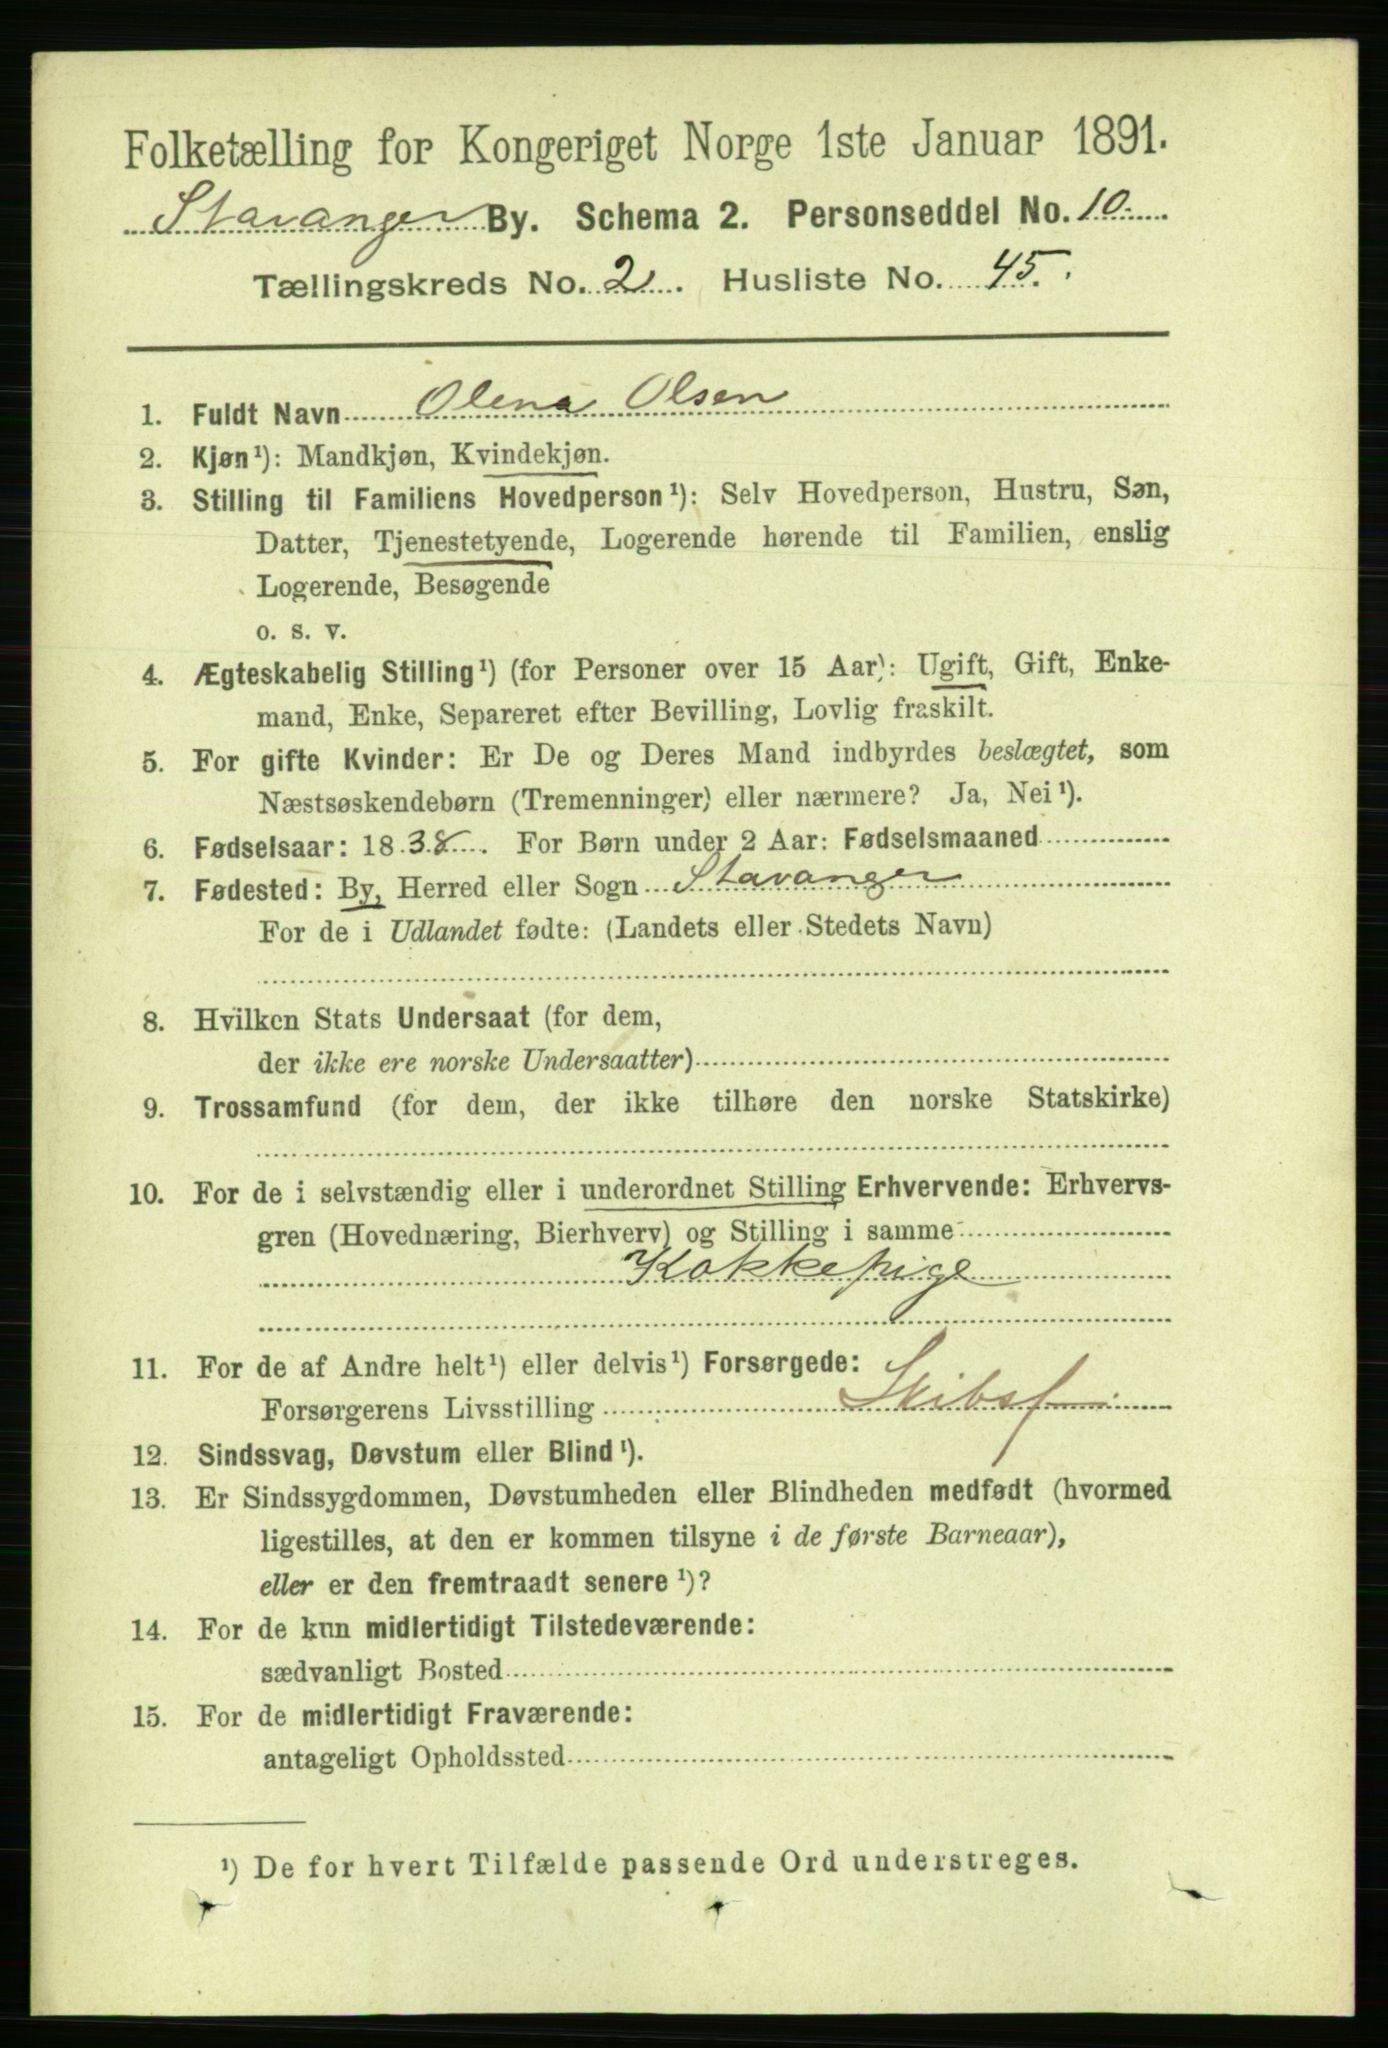 Folketælling for Kongeriget Norge 1ste Januar 1891.
Stavanger By. Schema 2. Personseddel No. 10.
Tællingskreds No. 2. Husliste No. 45.
1. Fuldt Navn Olena Olsen
2. Kjøn¹): Mandkjøn, Kvindekjøn.
3. Stilling til Familiens Hovedperson¹): Selv Hovedperson, Hustru, Søn,
Datter, Tjenestetyende, Logerende hørende til Familien, enslig
Logerende, Besøgende
o. s. v.
4. Ægteskabelig Stilling¹) (for Personer over 15 Aar): Ugift, Gift, Enke-
mand, Enke, Separeret efter Bevilling, Lovlig fraskilt.
5. For gifte Kvinder: Er De og Deres Mand indbyrdes beslægtet, som
Næstsøskendebørn (Tremenninger) eller nærmere? Ja, Nei¹).
6. Fødselsaar: 1838. For Børn under 2 Aar: Fødselsmaaned
7. Fødested: By, Herred eller Sogn Stavanger
For de i Udlandet fødte: (Landets eller Stedets Navn)
8. Hvilken Stats Undersaat (for dem,
der ikke ere norske Undersaatter)
9. Trossamfund (for dem, der ikke tilhøre den norske Statskirke)
10. For de i selvstændig eller i underordnet Stilling Erhvervende: Erhvervs-
gren (Hovednæring, Bierhverv) og Stilling i samme
Kokkepige
11. For de af Andre helt¹) eller delvis¹) Forsørgede:
Forsørgerens Livsstilling Skibsf
12. Sindssvag, Døvstum eller Blind¹).
13. Er Sindssygdommen, Døvstumheden eller Blindheden medfødt (hvormed
ligestilles, at den er kommen tilsyne i de første Barneaar),
eller er den fremtraadt senere¹)?
14. For de kun midlertidigt Tilstedeværende:
sædvanligt Bosted
15. For de midlertidigt Fraværende:
antageligt Opholdssted
¹) De for hvert Tilfælde passende Ord understreges.